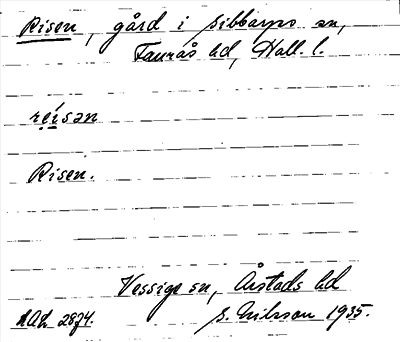 Risen, gård i Sibbarps sn,
Faurås hd, Hall. l.
reisən
Risen.
Vessige sn, Årstads hd
LAL 2874. S. Nilsson 1935.